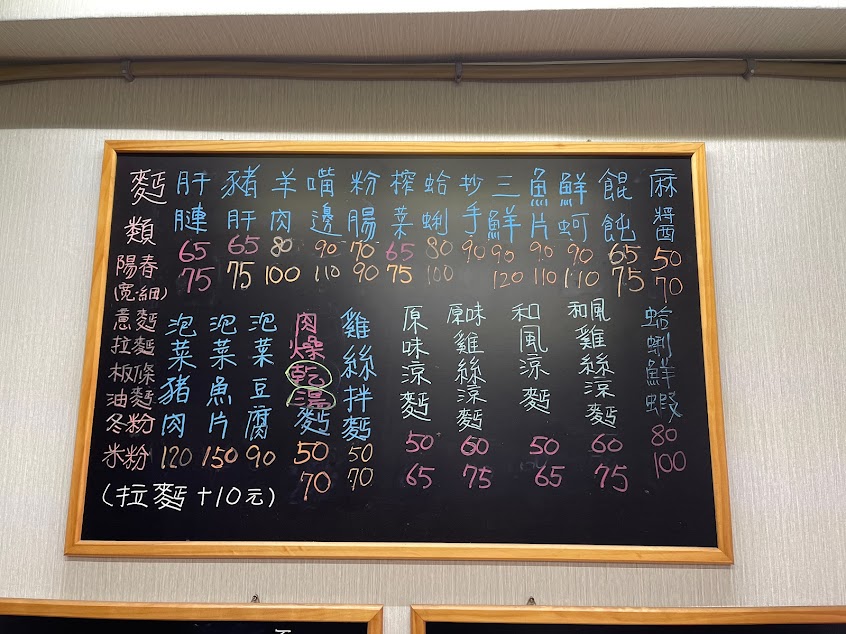 麵類
陽春
(寬.細)
薏麵
拉麵
板條
油麵
冬粉
米粉
肝連 65 75
豬肝 65 75
羊肉 80 100
嘴邊 90 110
粉腸 70 90
榨菜 65 75
蛤蜊 80 100
抄手 90
三鮮 90 120
魚片 90 110
鮮蚵 90 110
餛飩 65 75
麻醬 50 70
泡菜豬肉 120
泡菜魚片 150
泡菜豆腐 90
肉燥乾湯麵 50 70
雞絲拌麵 50 70
原味涼麵 50 65
原味雞絲涼麵 60 75
和風涼麵 50 65
和風雞絲涼麵 60 75
蛤蜊鮮蝦 80 100
(拉麵+10元)